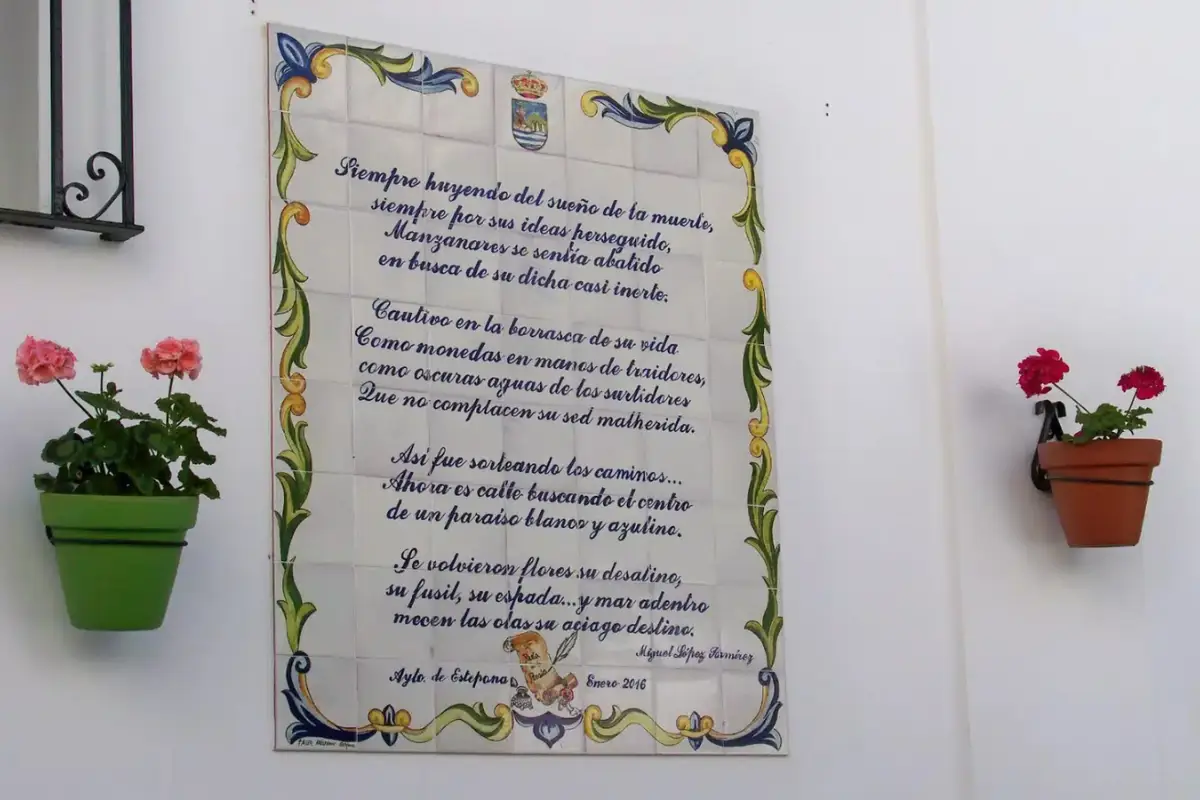 Siempre huyendo del sueño de la muerte,
siempre por sus ideas perseguido,
Manzanares se sentía abatido
en busca de su dicha casi inerte.
Cautivo en la borrasca de su vida
Como monedas en manos de traidores,
como oscuras aguas de los surtidores
Que no complacen su sed malherida.
Así fue sorteando los caminos...
Ahora es calle buscando el centro
de un paraíso blanco y azulino.
Se volvieron flores su desatino,
su fusil, su espada...y mar adentro
mecen las olas su aciago destino.
Miguel López Ramírez
Ruta
Poesía
Ayto. de Estepona
Enero 2016